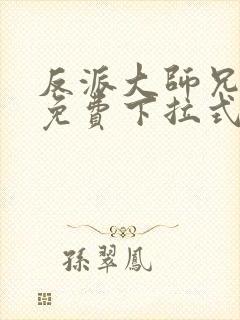 反派大師兄
免費下拉式
孫翠鳳